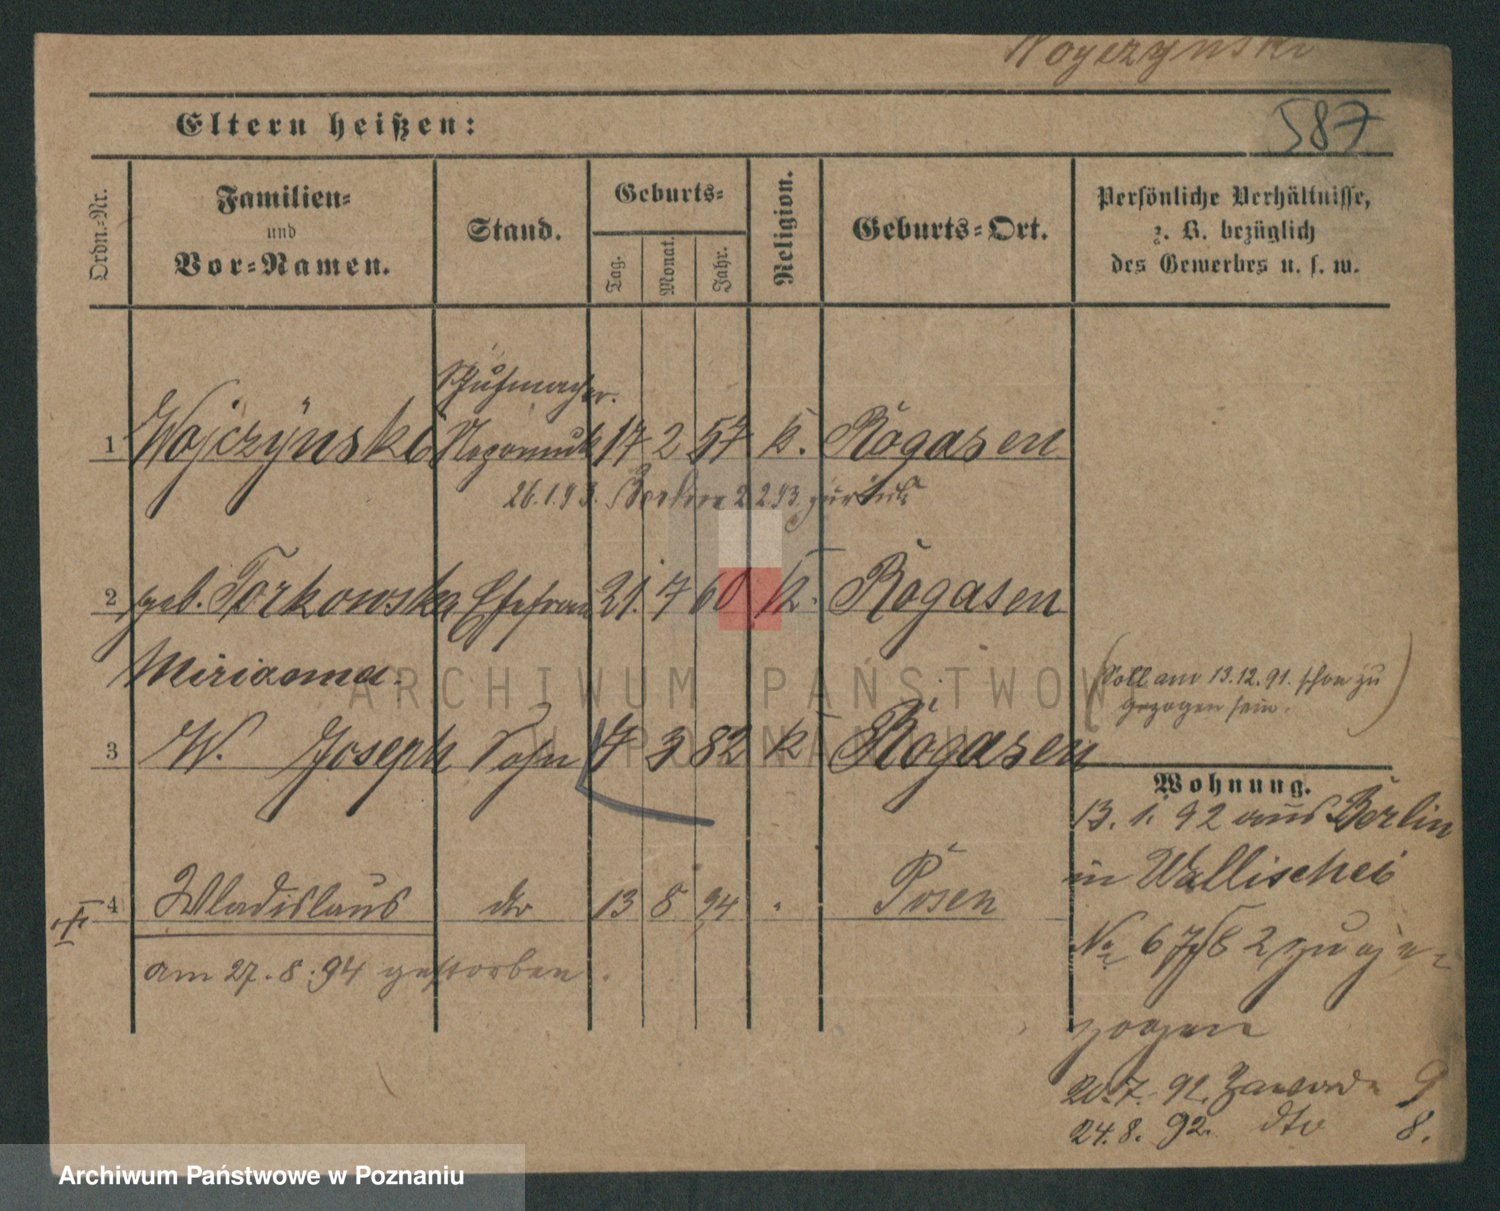 Woyczynski
587
Eltern heißen:
Ordn.-Nr.
Familien-
und
Vor-Namen.
Stand.
Geburts-
Tag.
Monat.
Jahr.
Religion.
Geburts-Ort.
Persönliche Verhältnisse,
z. B. bezüglich
des Gewerbes u. s. w.
Schuhmacher.
1 Wojczÿnski Nepomuk 17 2 57 k. Rogasen
26.1.93. Berlin 2 2 93. zurück
2 geb. Torkowska Ehefrau 21. 7 60 k. Rogasen
Mirianna.
(Soll am 13.12.91. schon zu
gezogen sein.)
3 W. Joseph Sohn 17 3 82 k Rogasen
Wohnung.
13. 1. 92 aus Berlin
in Wallischei
4 Wladislaus dto 13 8 94 " Posen
No 67/68 2 zuge-
zogen
am 27.8.94 gestorben.
20.7.92. Zawade 9
24.8.92. dto 8.
ARCHIWUM PAŃSTWOW
W POZNANIU
Archiwum Państwowe w Poznaniu